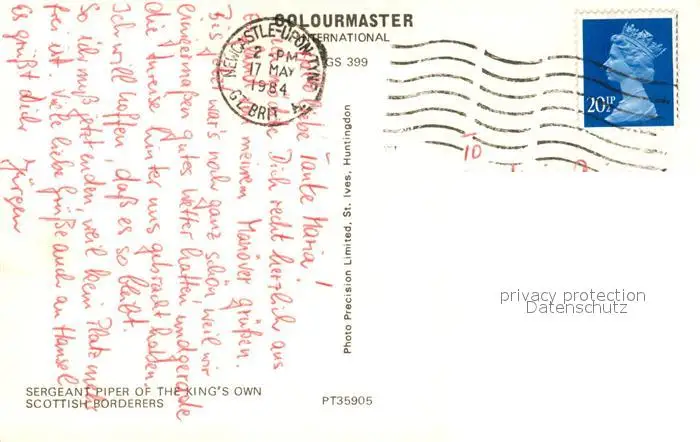 COLOURMASTER
INTERNATIONAL
GS 399
NEWCASTLE-UPON-TYNE
2 PM
17 MAY
1984
GT. BRIT.
20½P
10
liebe Tante Maria!
Dich recht herzlich aus
meinem Manöver grüßen.
Bis war's noch ganz schön, weil wir
einigermaßen gutes Wetter hatten, und gerade
die Anreise hinter uns gebracht haben.
Ich will hoffen, daß es so bleibt.
So ihr muß jetzt enden, weil kein Platz mehr
frei ist. Viele liebe Grüße auch an Hansel
Es grüßt dich
Jürgen
Photo Precision Limited, St. Ives, Huntingdon
privacy protection
Datenschutz
SERGEANT PIPER OF THE KING'S OWN
SCOTTISH BORDERERS
PT35905